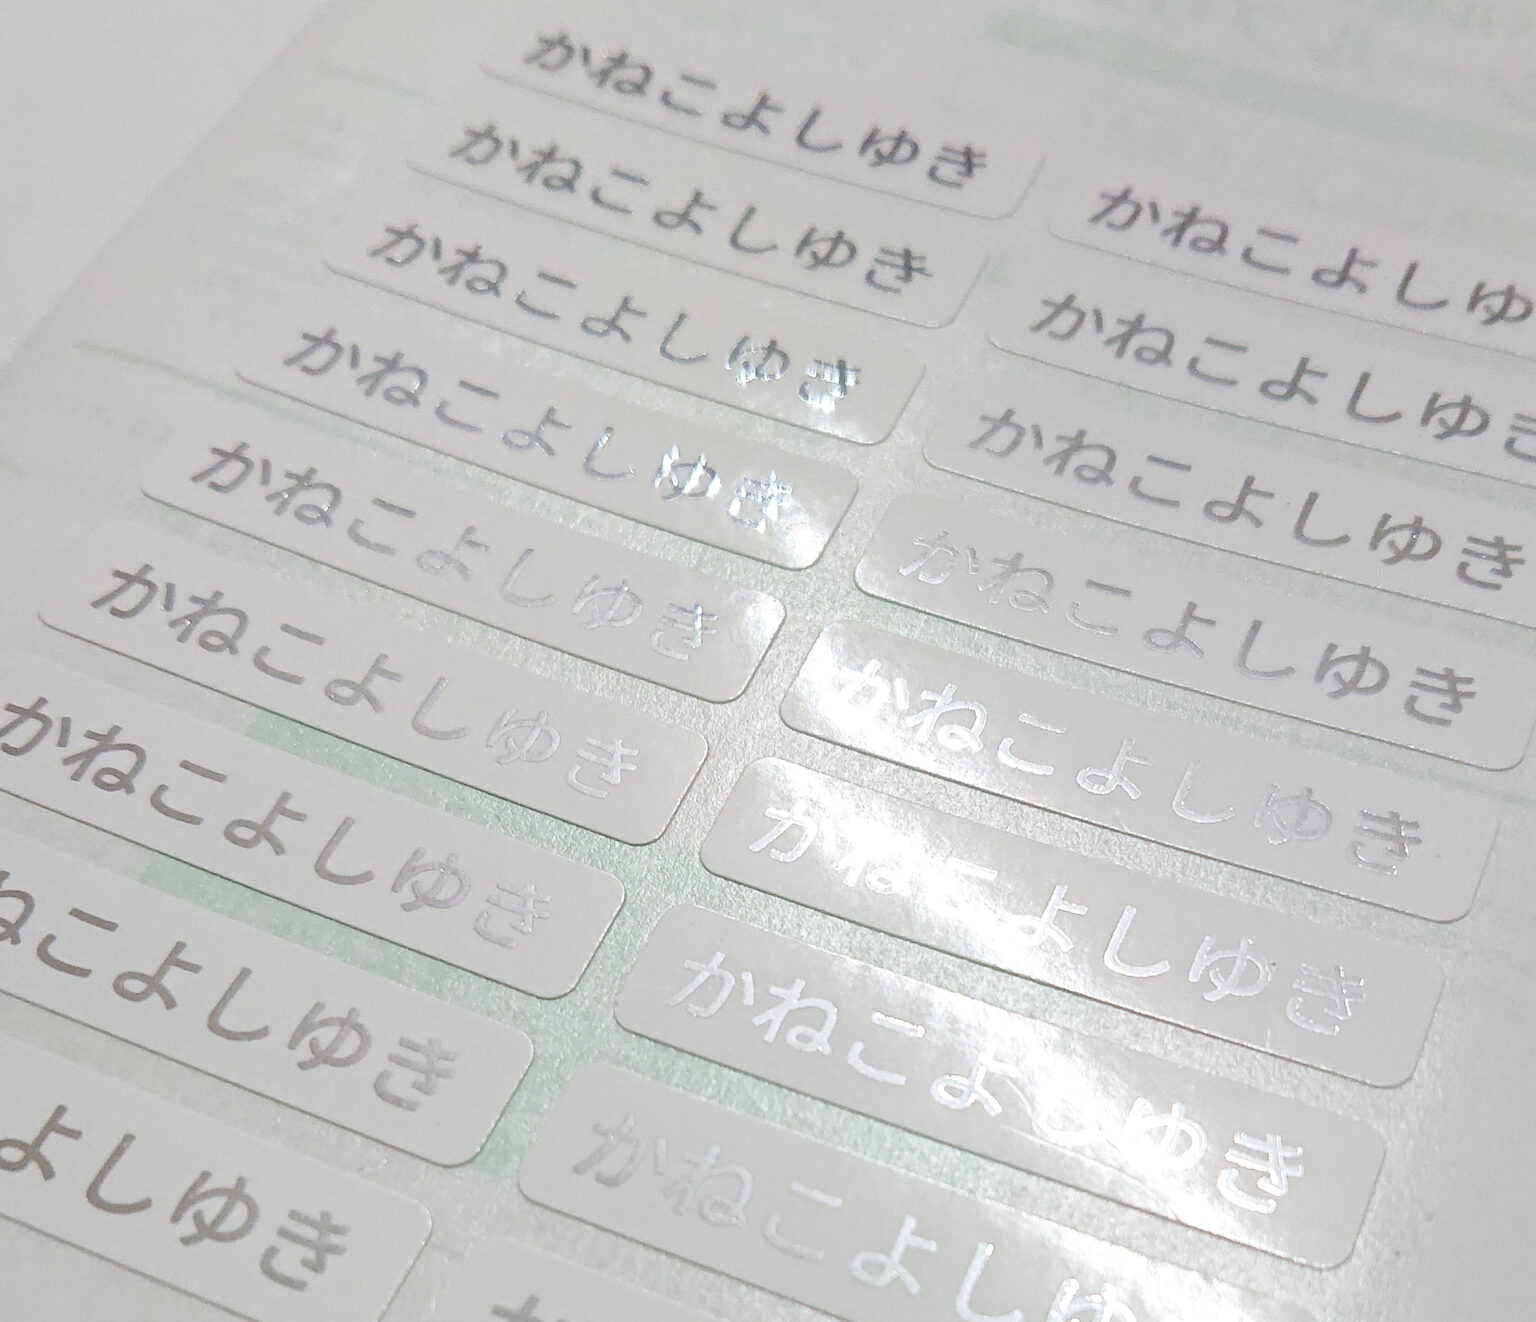 かねこよしゆき
かねこよしゆき
かねこよしゆき
かねこよしゆき
かねこよしゆき
かねこよしゆき
かねこよしゆき
ねこよしゆき
よしゆき
かねこよしゆ
かねこよしゆき
かねこよしゆき
かねこよしゆき
かねこよしゆき
かねこよしゆき
かねこよしゆき
かねこよしゆ
か